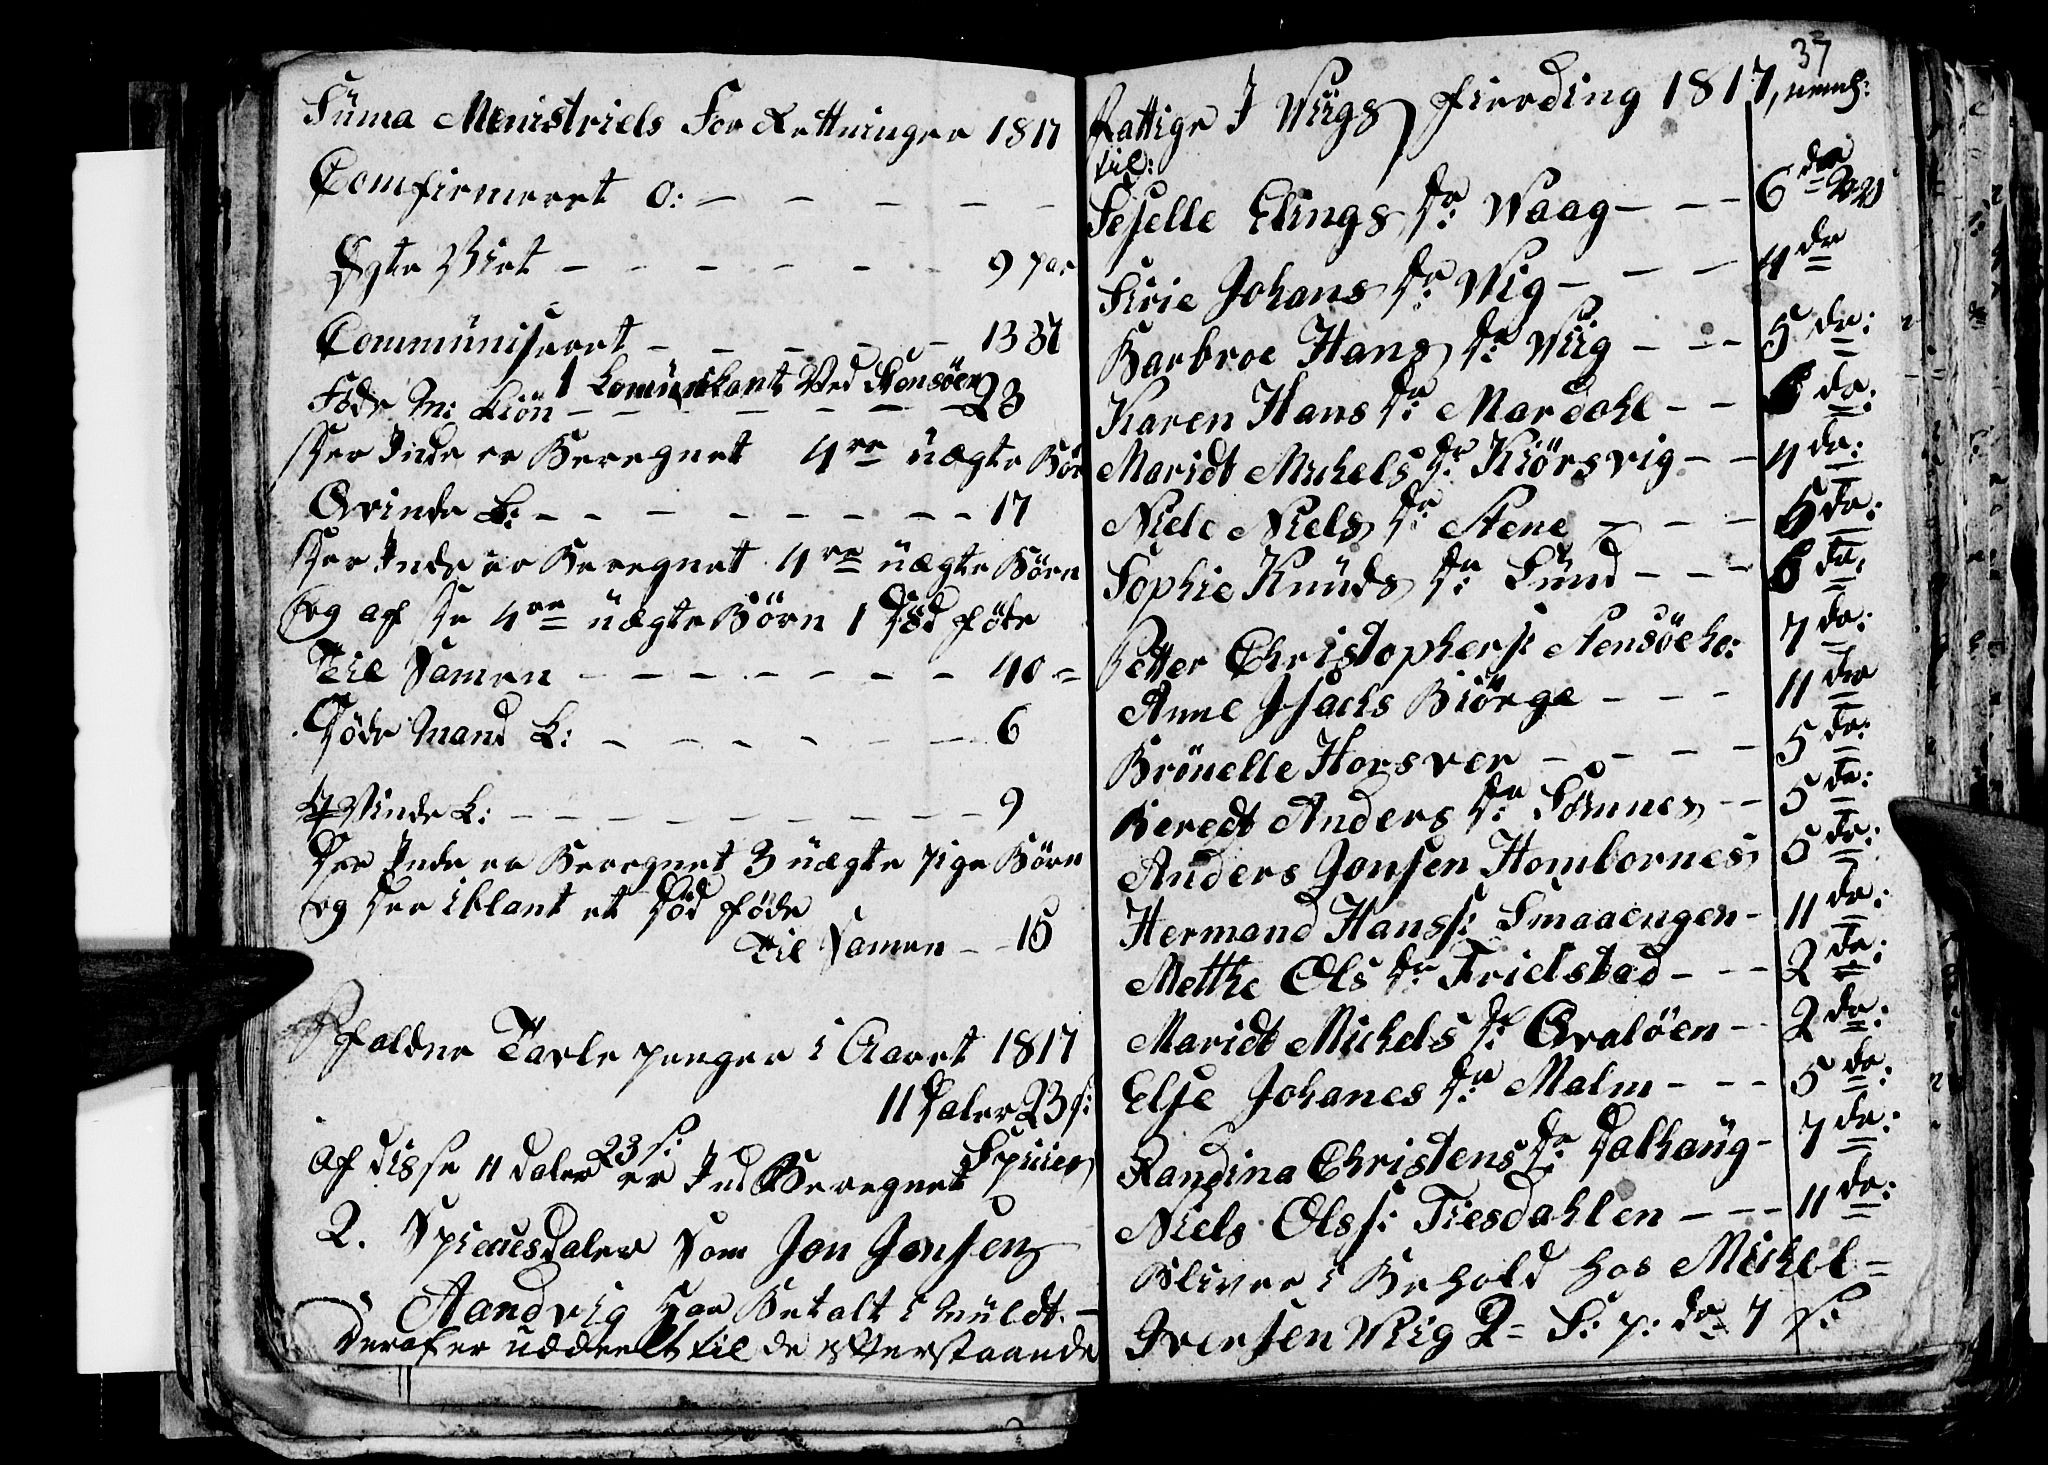 Suma Menistriels ForRettninger 1817
Comfirmeret 0: — — — — —
Ægte Viet — — — — — — 9 par
Communiseret — — — — — 1337
1 Komunikant Ved Stensöen
Föde M: Kiön — — — — — — 23
Her Inde er Beregnet 4re uægte Bör
Qvinde K: — — — — — — — 17
Her Inde er Beregnet 4re uægte Börn
og af de 4re uægte Börn 1 död föde
Til Samen — — — — — — — 40 =
Döde Mand K: — — — — — — 6
Qvinde K: — — — — — — — — 9
Der Inde er Beregnet 3 uægte pige Börn
og der iblant et död föde
Til Samen — 15
Tavle penger i Aaret 1817
11 Daler 23 s:
Af disse 11 daler 23 s: er Ind Beregnet Spicies
2. Spiciesdaler Som Jon Jonsen
Aandvig har Betalt i Muldt. —
Deraf er uddeelt til de efterstaande
37
Fattige I Wiigs fierding 1817, neml:
til:
Seselle Elings Dr: Waag — — — 6 dr 20
Sirie Johans Dr: Wig — — — 4 dr
Barbroe Hans Dr: Wiig — — — 5 dr:
Karen Hans Dr Mardahl — — 6 dr:
Maridt Michels Dr: Kiörsvig — — 4 dr:
Niele Niels Dr Stene — — — 5 dr:
Sophie Knuds Dr: Sund — — — 6 dr:
Petter Christophers: Stensöeho: 7 dr:
Anne Isachs Biörge — — — 11 dr
Brönelle Horsver — — — — 5 dr:
Beredt Anders Dr: Sömnes — — 5 dr:
Anders Jonsen Hombornes 5 dr:
Hermand Hanss: Smaaengen — 11 dr:
Metthe Ols Dr Frielstad — — — 2 dr:
Maridt Michels Dr: Qvalöen — — 2 dr:
Else Johanes Dr: Malm — — — 5 dr:
Randina Christens Dr: Dalhaug — 7 dr:
Niels Olss: Tiesdahlen — — — 11 dr:
Bliver i Behold hos Michel =
Iversen Wiig 2 = S: p: dr 7 s: